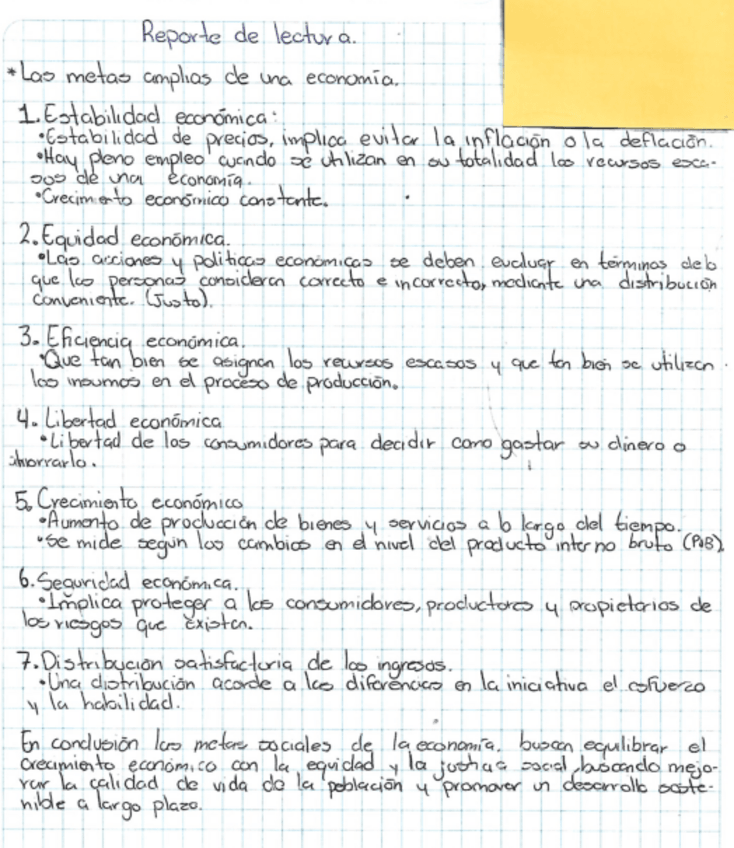 Reporte de lectura.
*Las metas amplias de una economía.
1. Estabilidad económica:
•Estabilidad de precios, implica evitar la inflación o la deflación.
•Hay pleno empleo cuando se utilizan en su totalidad los recursos esca-
sos de una economía.
•Crecimiento económico constante.
2. Equidad económica.
•Las acciones y políticas económicas se deben evaluar en términos de lo
que las personas consideran correcto e incorrecto, mediante una distribución
conveniente. (Justo).
3. Eficiencia económica.
•Que tan bien se asignan los recursos escasos y que tan bien se utilizan
los insumos en el proceso de producción.
4. Libertad económica
•Libertad de los consumidores para decidir como gastar su dinero o
ahorrarlo.
5. Crecimiento económico
•Aumento de producción de bienes y servicios a lo largo del tiempo.
•Se mide según los cambios en el nivel del producto interno bruto (PIB)
6. Seguridad económica.
•Implica proteger a los consumidores, productores y propietarios de
los riesgos que existen.
7. Distribución satisfactoria de los ingresos.
•Una distribución acorde a las diferencias en la iniciativa el esfuerzo
y la habilidad.
En conclusión las metas sociales de la economía. buscan equlibrar el
crecimiento económico con la equidad y la justicia social, buscando mejo-
rar la calidad de vida de la población y promover un desarrollo soste-
nible a largo plazo.